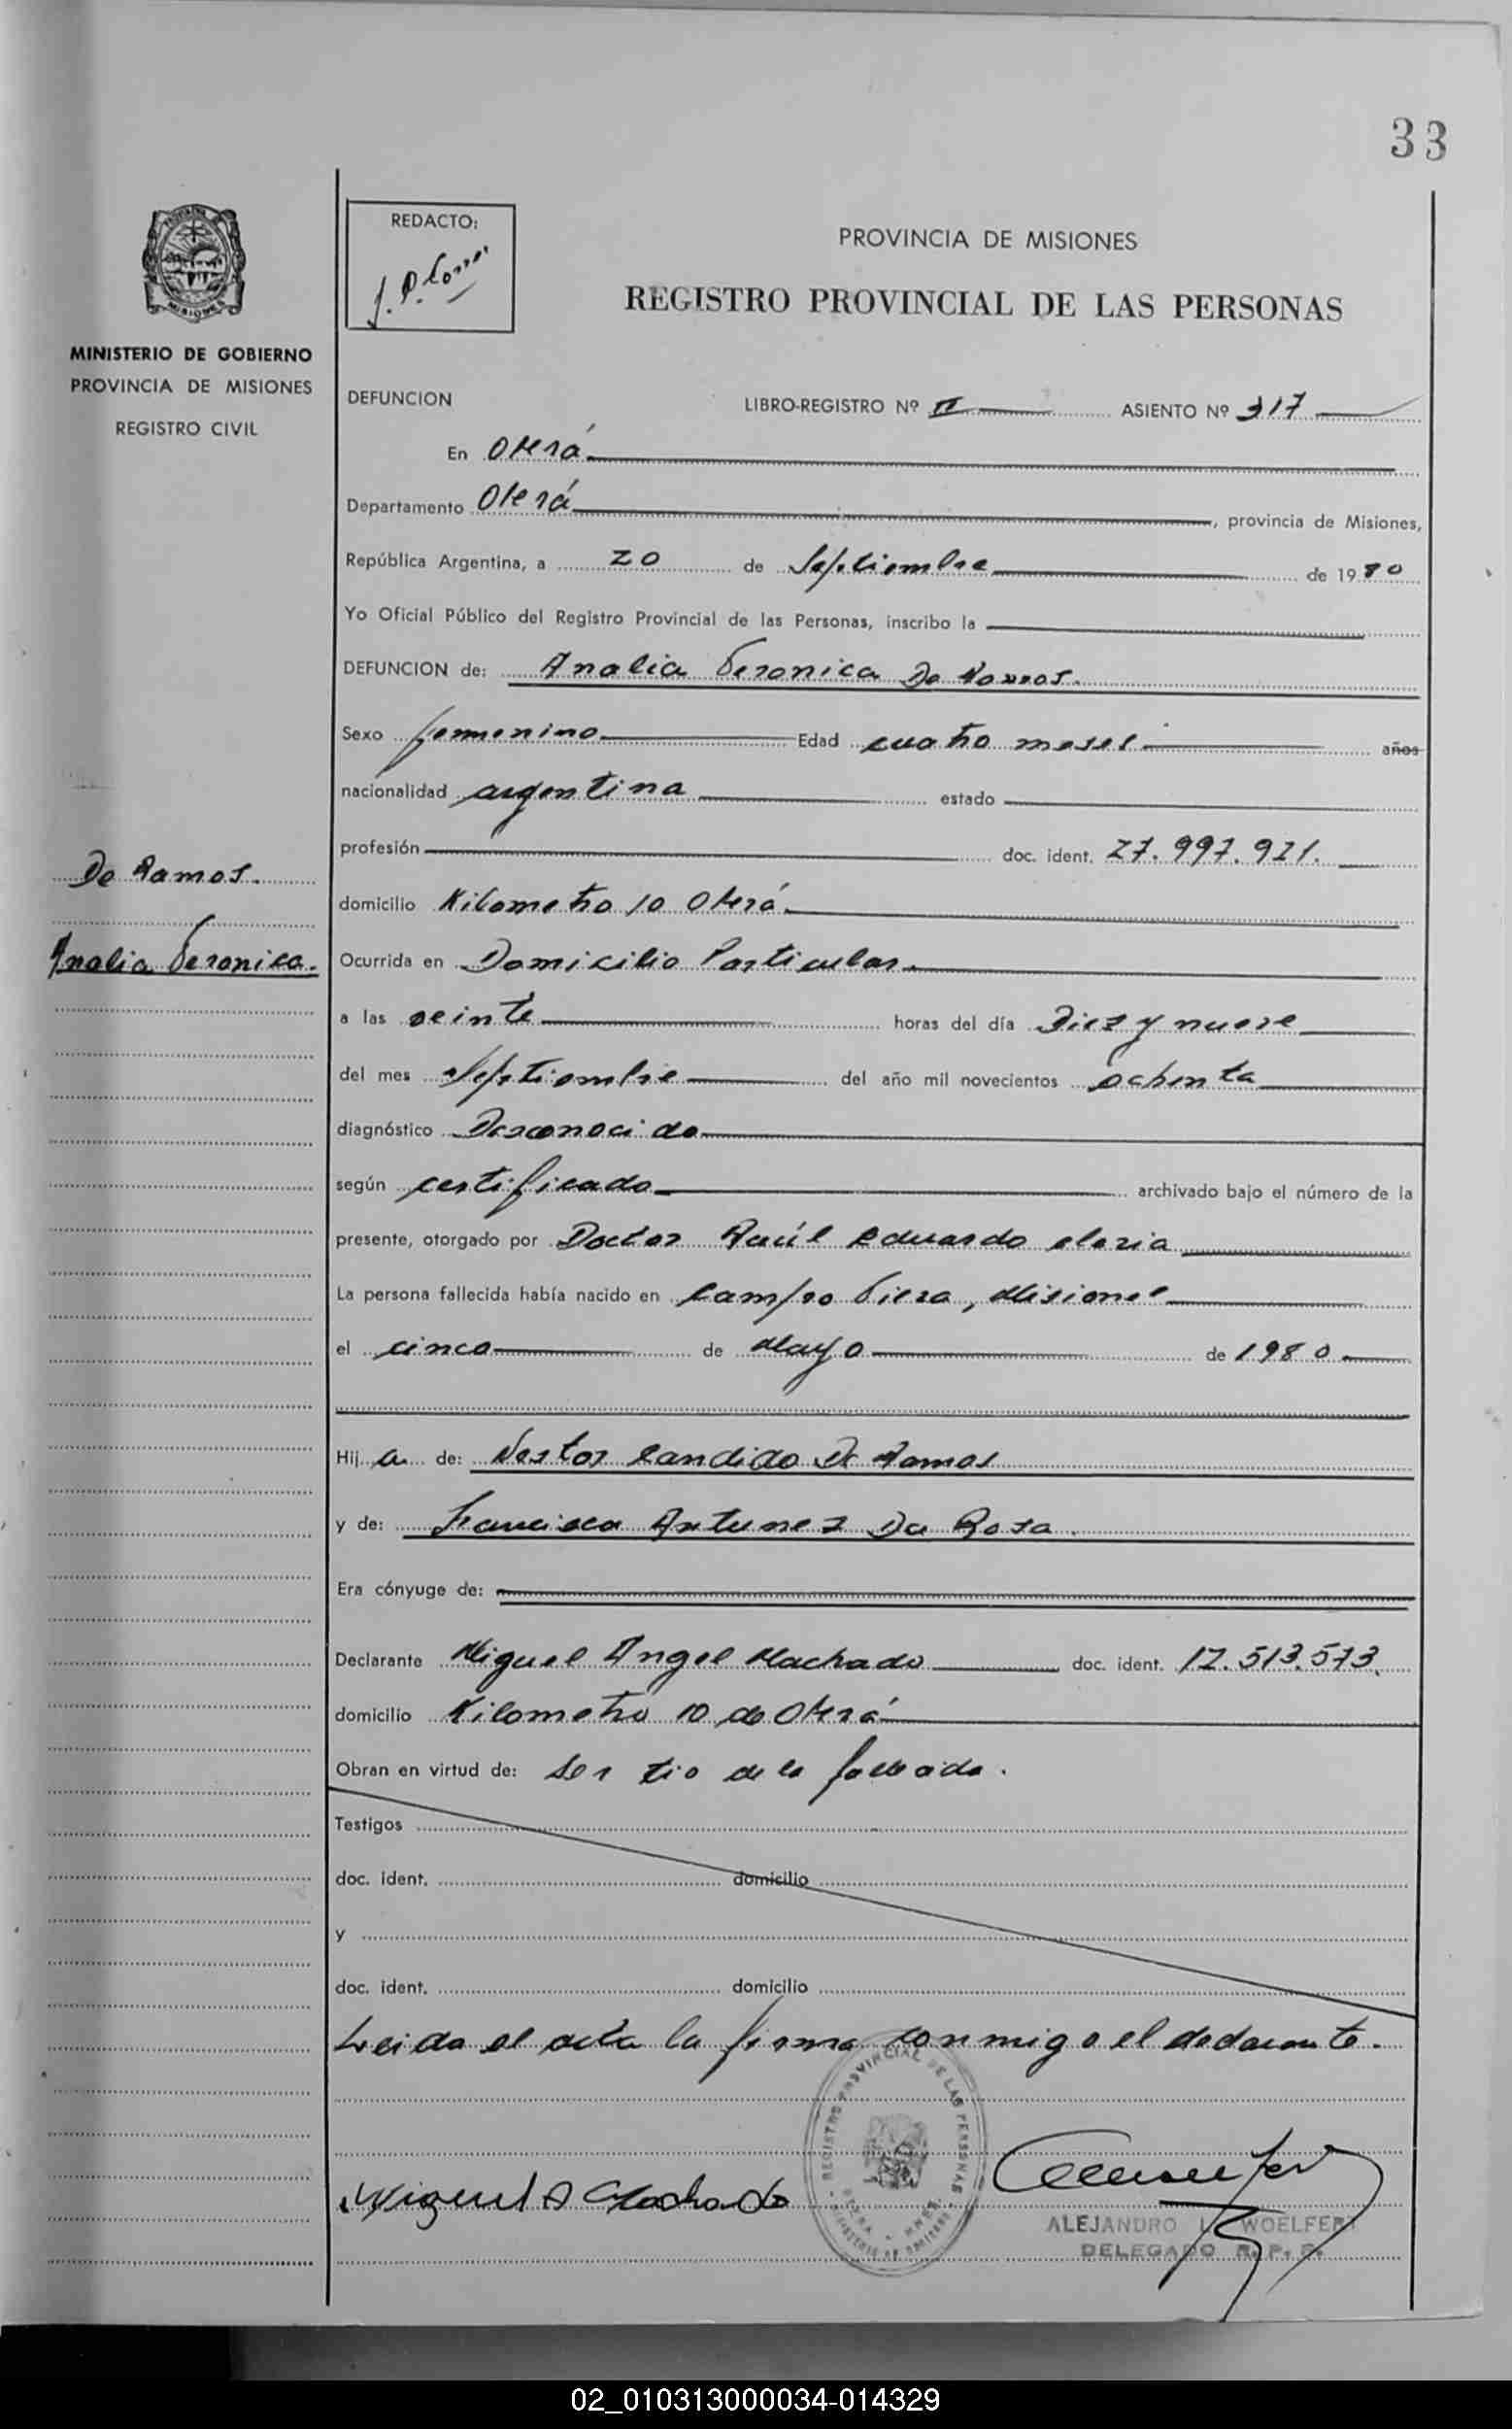 33
REDACTO:
PROVINCIA DE MISIONES
REGISTRO PROVINCIAL DE LAS PERSONAS
MINISTERIO DE GOBIERNO
PROVINCIA DE MISIONES
REGISTRO CIVIL
DEFUNCION LIBRO-REGISTRO Nº II ASIENTO Nº 317
En Oberá
Departamento Oberá, provincia de Misiones,
República Argentina, a 20 de Septiembre de 1980
Yo Oficial Público del Registro Provincial de las Personas, inscribo la
DEFUNCION de: Analia Veronica De Ramos.
Sexo femenino Edad cuatro meses años
nacionalidad argentina estado
profesión doc. ident. 27.997.921.
De Ramos.
domicilio Kilometro 10 Oberá
Analia Veronica.
Ocurrida en Domicilio Particular.
a las veinte horas del día Diez y nueve
del mes Septiembre del año mil novecientos ochenta
diagnóstico Desconocido
según certificado archivado bajo el número de la
presente, otorgado por Doctor Raúl Eduardo
La persona fallecida había nacido en Campo Viera, Misiones
el cinco de Mayo de 1980
Hija de: Nestor Candido De Ramos
y de: Francisca Antunez Da Rosa
Era cónyuge de:
Declarante Miguel Angel Machado doc. ident. 17.513.573.
domicilio Kilometro 10 de Oberá
Obran en virtud de: Ser tio de la fallecida.
Testigos
doc. ident. domicilio
y
doc. ident. domicilio
Leida el acta la firma conmigo el declarante.
REGISTRO PROVINCIAL DE LAS PERSONAS
Miguel A Machado
ALEJANDRO L. WOELFERT
DELEGADO R. P. P.
02_010313000034-014329